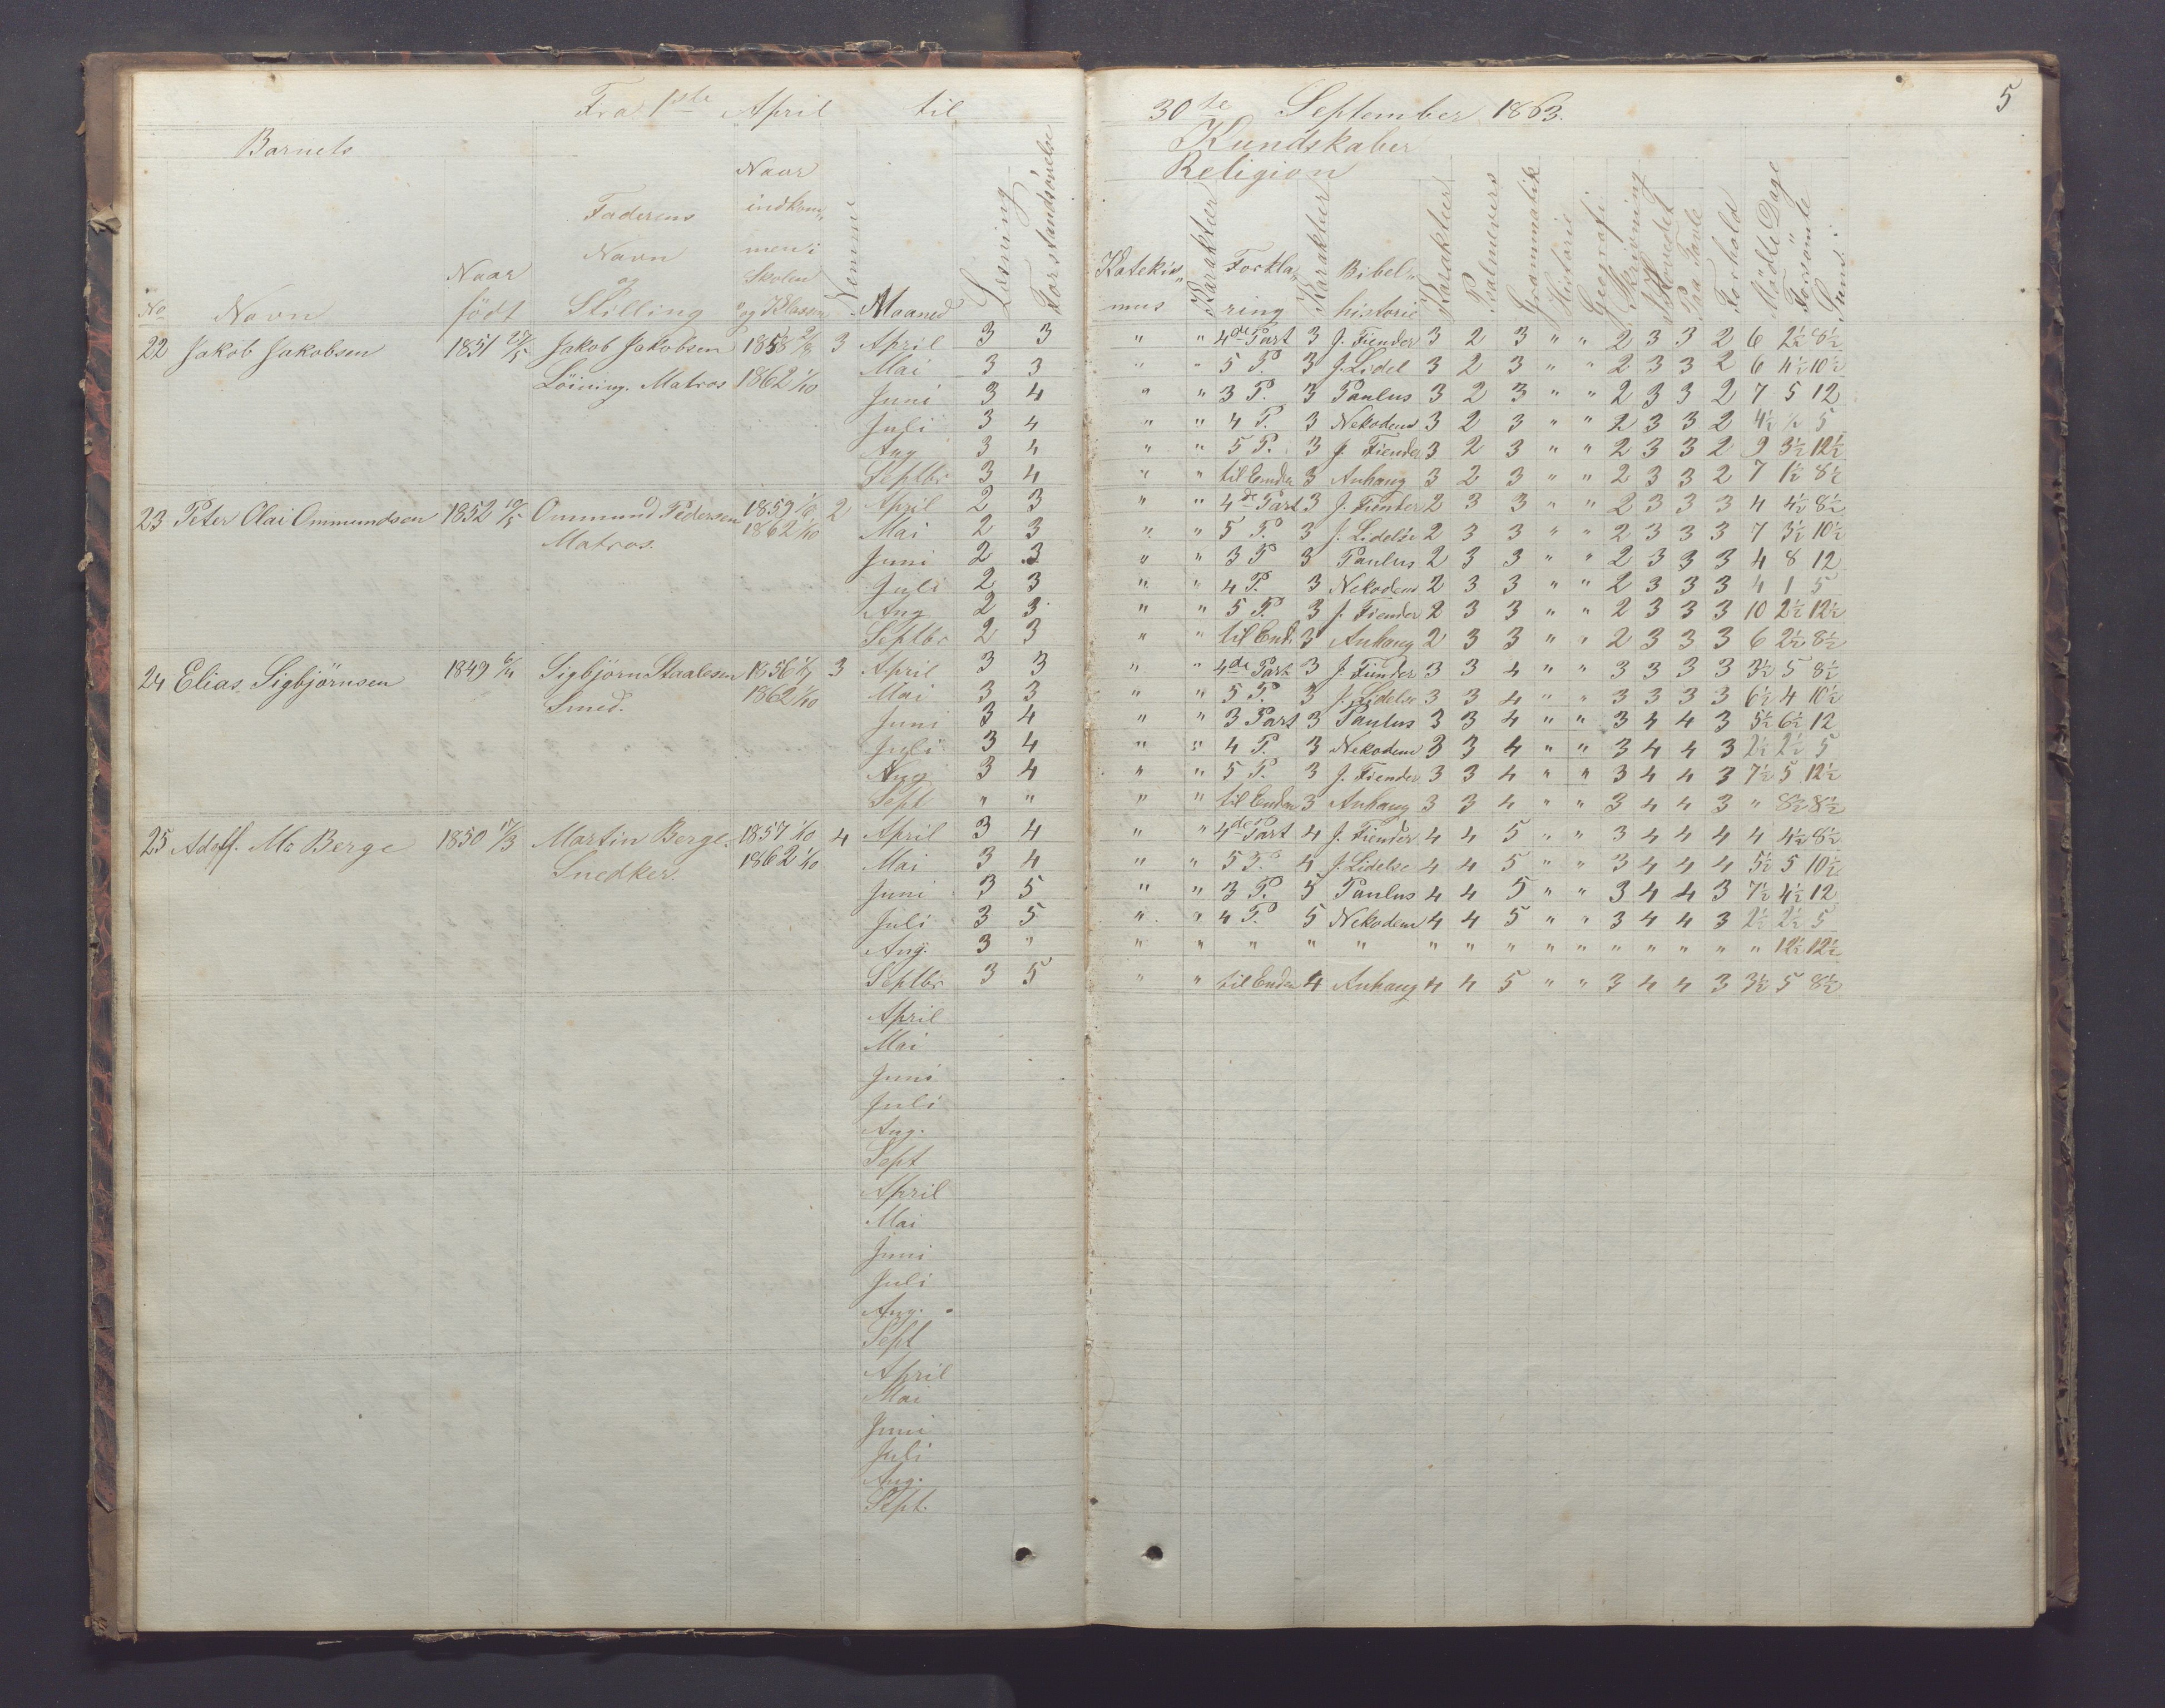 Fra 1ste April til 30te September 1863. 5
Barnets Kundskaber
Religion
No Navn Naar födt Faderens Navn og Stilling Naar indkommen i Skolen og Klassen Nemme Maaned Læsning Forstandsövelse Katekismus Karakteer Forklaring Karakteer Bibelhistorie Karakteer Psalmevers Grammatik Historie Geografi Skrivning Paa Tavle Forhold Mödte Dage Forsömte " Sum:
22 Jakob Jakobsen 1851 27/5 Jakob Jakobsen 1858 3 April 3 3 " " 4de Part 3 J. Fiender 3 2 3 " " 2 3 3 2 6 2½ 8½
Löining. Matros 1862 1/10 Mai 3 3 " " 5 P. 3 J. Lidel 3 2 3 " " 2 3 3 2 6 4½ 10½
Juni 3 4 " " 3 P. 3 Paulus 3 2 3 " " 2 3 3 2 7 5 12
Juli 3 4 " " 4 P. 3 Nekodem 3 2 3 " " 2 3 3 2 4½ ½ 5
Aug 3 4 " " 5 P. 3 J. Fiender 3 2 3 " " 2 3 3 2 9 3½ 12½
Septbr 3 4 " " til Enden 3 Anhang 3 2 3 " " 2 3 3 2 7 1½ 8½
23 Peter Olai Ommundsen 1852 10/5 Ommund Pedersen 1859 2 April 2 3 " " 4de Part 3 J. Fiender 2 3 3 " " 2 3 3 3 4 4½ 8½
Matros. 1862 1/10 Mai 2 3 " " 5 P. 3 J. Lidelse 2 3 3 " " 2 3 3 3 7 3½ 10½
Juni 2 3 " " 3 P 3 Paulus 2 3 3 " " 2 3 3 3 4 8 12
Juli 2 3 " " 4 P. 3 Nekodem 2 3 3 " " 2 3 3 3 4 1 5
Aug 2 3 " " 5 P. 3 J. Fiender 2 3 3 " " 2 3 3 3 10 2½ 12½
Septbr 2 3 " " til End. 3 Anhang 2 3 3 " " 2 3 3 3 6 2½ 8½
24 Elias Sigbjörnsen 1849 Sigbjörn Staalesen 1856 3 April 3 3 " " 4de Part 3 J. Fiender 3 3 4 " " 3 3 3 3 3½ 5 8½
Smed. 1862 1/10 Mai 3 3 " " 5 P. 3 J. Lidelse 3 3 4 " " 3 3 3 3 6½ 4 10½
Juni 3 4 " " 3 Part 3 Paulus 3 3 4 " " 3 4 4 3 5½ 6½ 12
Juli 3 4 " " 4 P. 3 Nekodem 3 3 4 " " 3 4 4 3 2½ 2½ 5
Aug 3 4 " " 5 P. 3 J. Fiender 3 3 4 " " 3 4 4 3 7½ 5 12½
Sept " " " " til Enden 3 Anhang 3 3 4 " " 3 4 4 3 " 8½ 8½
25 Adolf. M. Berge 1850 17/3 Martin Berge. 1857 1/10 4 April 3 4 " " 4de Part 4 J. Fiender 4 4 5 " " 3 4 4 4 4 4½ 8½
Snedker. 1862 1/10 Mai 3 4 " " 5 P. 4 J. Lidelse 4 4 5 " " 3 4 4 4 5½ 5 10½
Juni 3 5 " " 3 P. 5 Paulus 4 4 5 " " 3 4 4 3 7½ 4½ 12
Juli 3 5 " " 4 P. 5 Nekodem 4 4 5 " " 3 4 4 3 2½ 2½ 5
Aug. 3 " " " " " " " " " " " " " " " " " 12½ 12½
Septbr 3 5 " " til Enden 4 Anhang 4 4 5 " " 3 4 4 3 3½ 5 8½
April
Mai
Juni
Juli
Aug.
Sept
April
Mai
Juni
Juli
Aug.
Sept
April
Mai
Juni
Juli
Aug.
Sept.